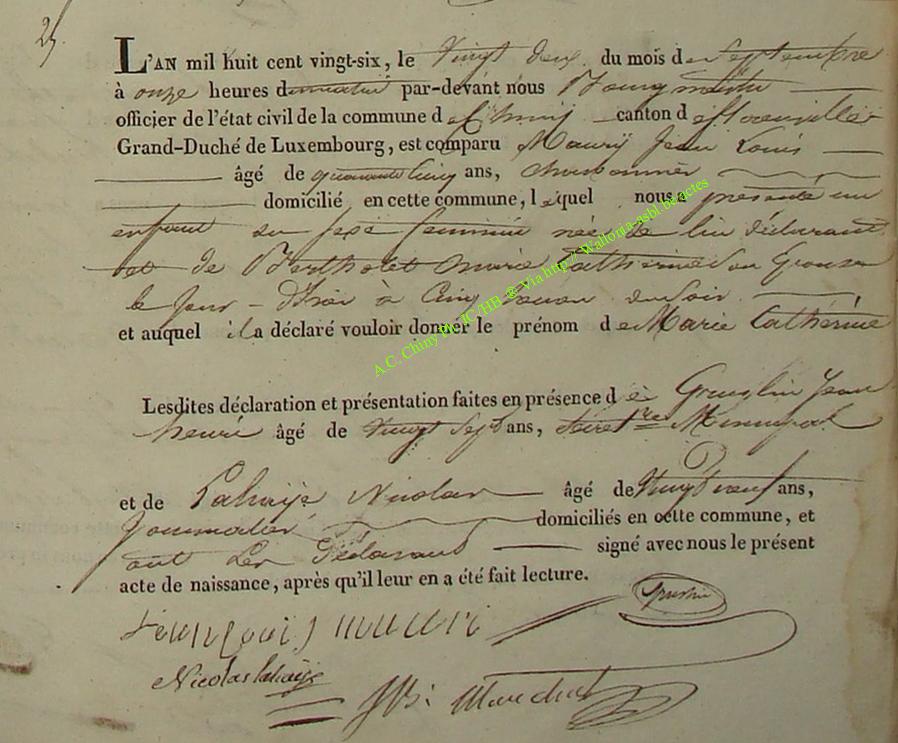 25.
L'AN mil huit cent vingt-six, le Vingt Deux du mois de Septembre
à onze heures du matin par-devant nous Bourgmestre
officier de l'état civil de la commune de Chiny canton de florenville
Grand-Duché de Luxembourg, est comparu Maury Jean Louis
âgé de quarante Cinq ans, charbonnier
domicilié en cette commune, lequel nous a présenté un
enfant du sexe feminin née de lui déclarant
et de Bertholet Marie Catherine Son
le jour d'hier à Cinq heures du soir
et auquel il a déclaré vouloir donner le prénom de Marie Cathérine
Lesdites déclaration et présentation faites en présence de Jean
henri âgé de Vingt Sept ans,
et de Lahaÿe Nicolas âgé de Vingt neuf ans,
Journalier domiciliés en cette commune, et
ont les Déclarant signé avec nous le présent
acte de naissance, après qu'il leur en a été fait lecture.
Nicolas lahaÿe
JB: Marechal
A.C. Chiny Ph JC HB ® Via http:// Wallonia-asbl.be/actes